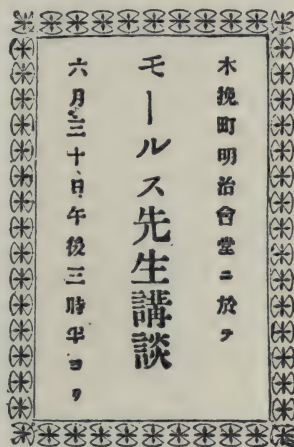 木挽町明治會堂ニ於テ
モールス先生講談
六月三十日午後三時半ヨリ